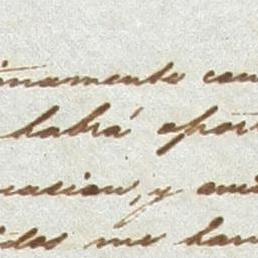 namente con
habrá opor
uacion, y ami
idos me han